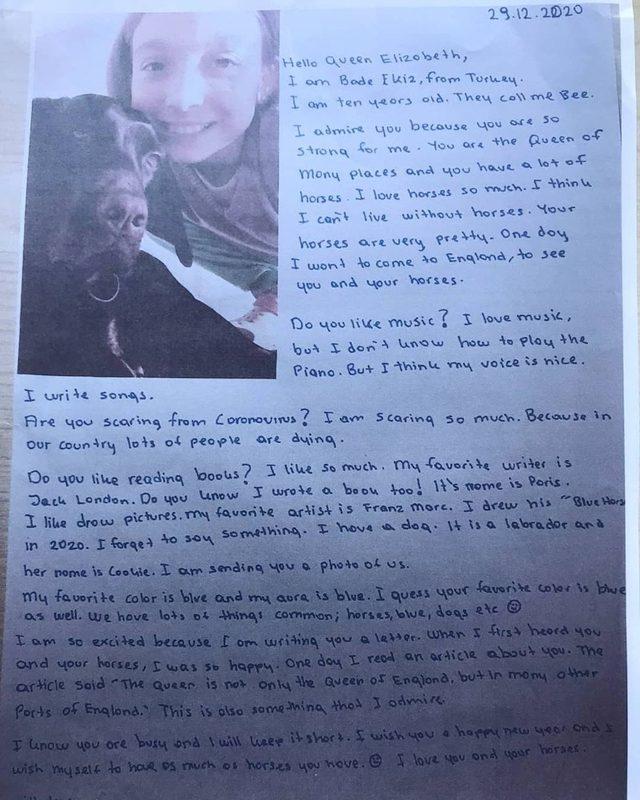 29.12.2020
Hello Queen Elizobeth,
I am Bade Ekiz, from Turkey.
I am ten years old. They call me Bee.
I admire you because you are so
strong for me. You are the Queen of
many places and you have a lot of
horses. I love horses so much. I think
I can't live without horses. Your
horses are very pretty. One day
I want to come to England, to see
you and your horses.
Do you like music? I love music,
but I don't know how to play the
Piano. But I think my voice is nice.
I write songs.
Are you scaring from Coronovirus? I am scaring so much. Because in
our country lots of people are dying.
Do you like reading books? I like so much. My favorite writer is
Jack London. Do you know I wrote a book too! It's name is Paris.
I like drow pictures. my favorite artist is Franz Marc. I drew his "Blue Horse
in 2020. I forget to say something. I have a dog. It is a labrador and
her name is Cookie. I am sending you a photo of us.
my favorite color is blue and my aura is blue. I guess your favorite color is blue
as well. We have lots of things common; horses, blue, dogs etc ☺
I am so excited because I am writing you a letter. When I first heard you
and your horses, I was so happy. One day I read an article about you. The
article said "The Queen is not only the Queen of England, but in many other
Parts of England." This is also something that I admire.
I know you are busy and I will keep it short. I wish you a happy new year and I
wish myself to have as much as horses you have. ☺ I love you and your horses.